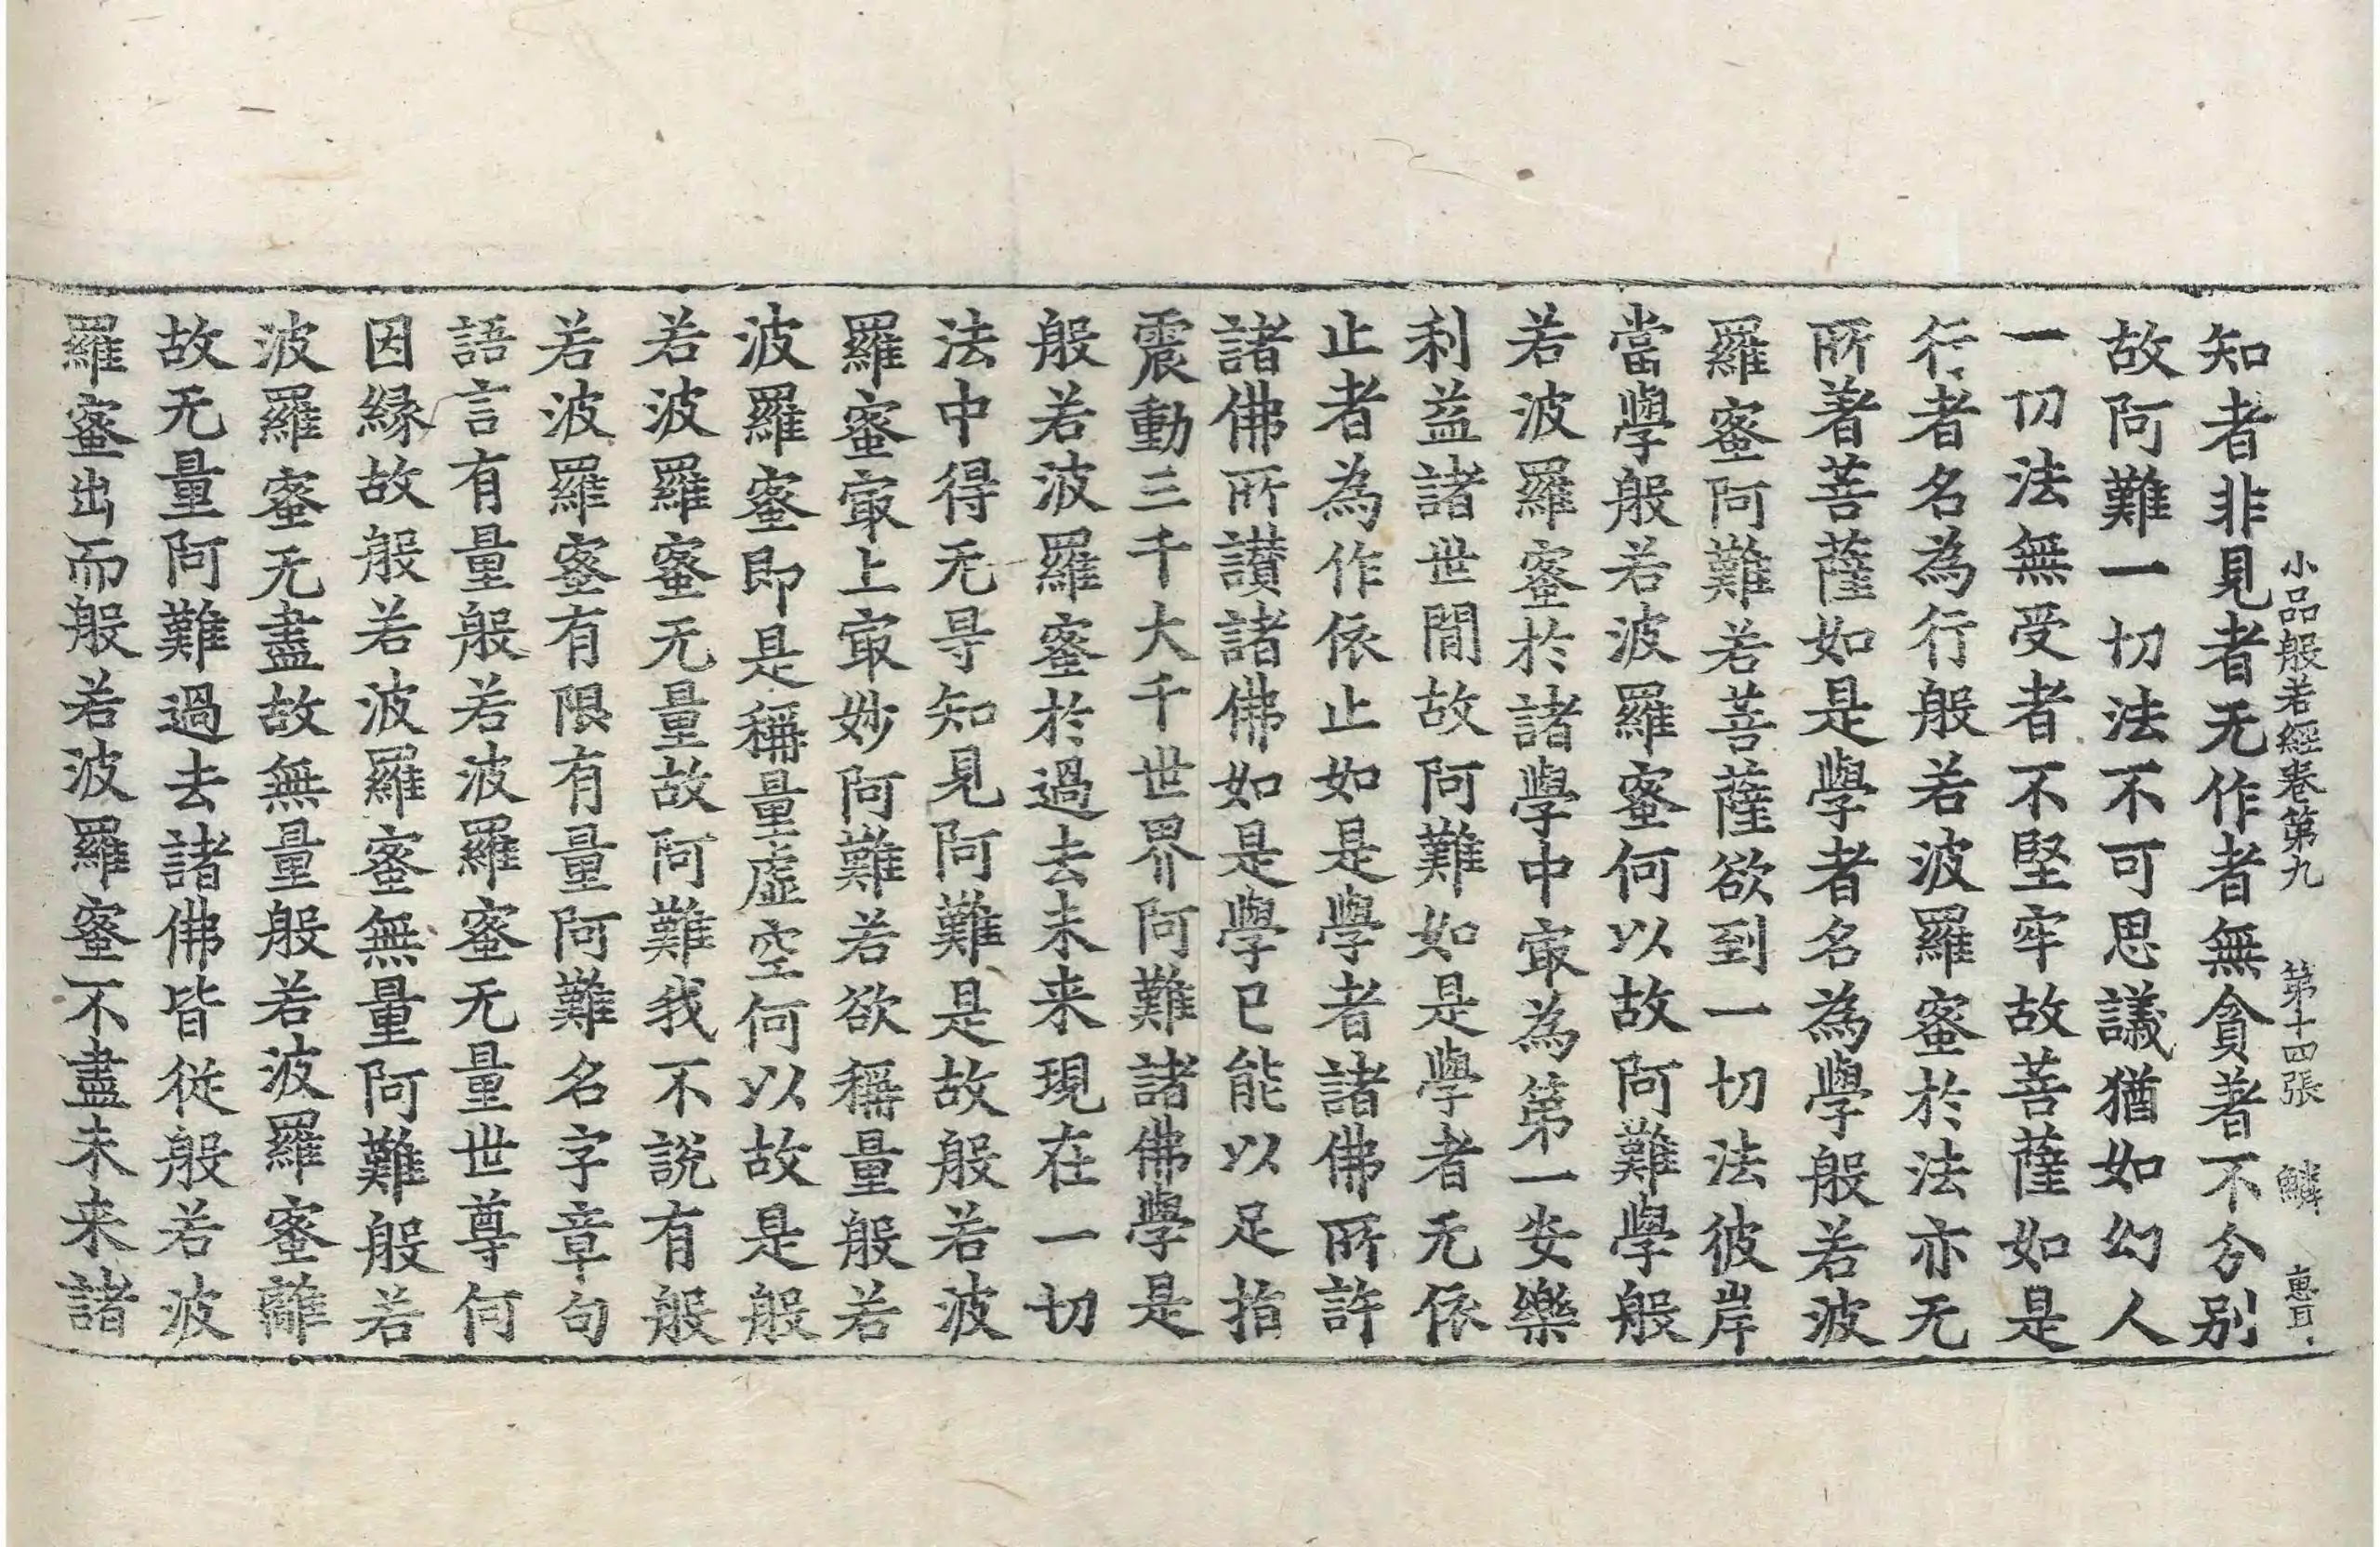 小品般若經卷第九 第十四張 鱗 惠耳
知者非見者无作者無貪著不分別
故阿難一切法不可思議猶如幻人
一切法無受者不堅牢故菩薩如是
行者名為行般若波羅蜜於法亦无
所著菩薩如是學者名為學般若波
羅蜜阿難若菩薩欲到一切法彼岸
當學般若波羅蜜何以故阿難學般
若波羅蜜於諸學中㝡為第一安樂
利益諸世間故阿難如是學者无依
止者為作依止如是學者諸佛所許
諸佛所讃諸佛如是學已能以足指
震動三千大千世界阿難諸佛學是
般若波羅蜜於過去未来現在一切
法中得无㝵知見阿難是故般若波
羅蜜㝡上㝡妙阿難若欲稱量般若
波羅蜜即是稱量虛空何以故是般
若波羅蜜无量故阿難我不說有般
若波羅蜜有限有量阿難名字章句
語言有量般若波羅蜜无量世尊何
因緣故般若波羅蜜無量阿難般若
波羅蜜无盡故無量般若波羅蜜離
故无量阿難過去諸佛皆從般若波
羅蜜出而般若波羅蜜不盡未来諸